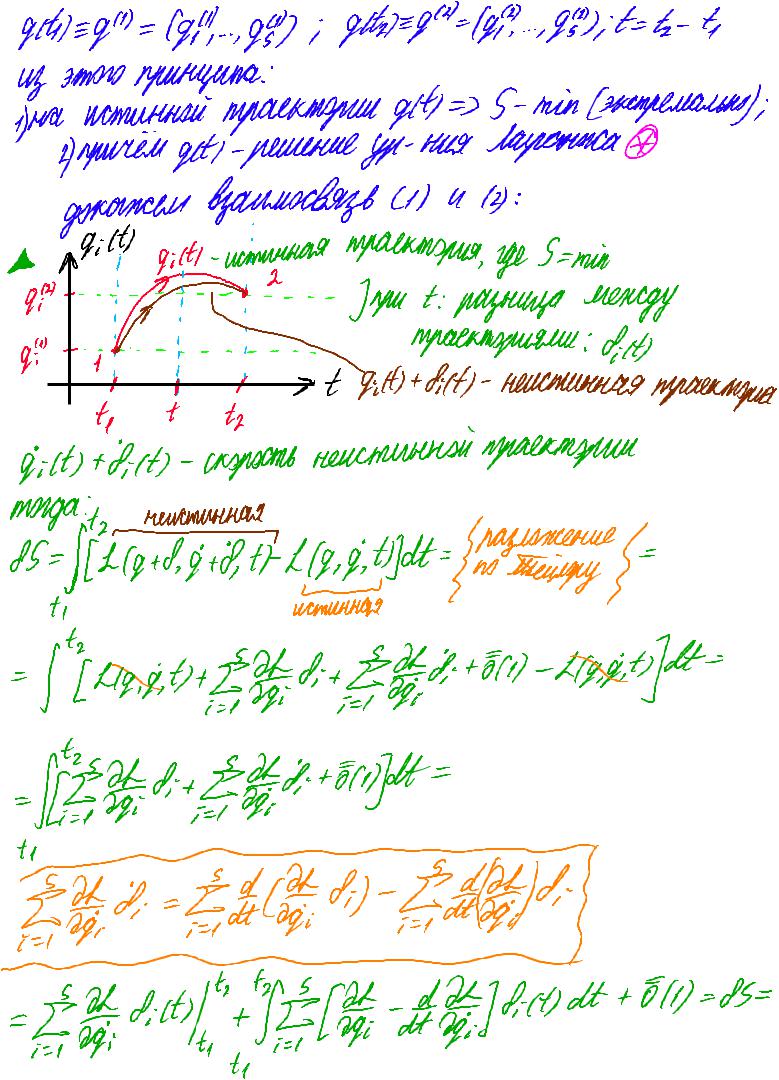 q(t₁) ≡ q⁽¹⁾ = (q₁⁽¹⁾,..., q_S⁽¹⁾) ; q(t₂) ≡ q⁽²⁾ = (q₁⁽²⁾,..., q_S⁽²⁾); t = t₂ - t₁
из этого принципа:
1) на истинной траектории q(t) => S - min (экстремально);
2) причём q(t) - решение ур-ния Лагранжа ⊛
докажем взаимосвязь (1) и (2):
q_i(t)
q_i(t) - истинная траектория, где S = min
2
q_i⁽²⁾
] при t: разница между
траекториями: δ_i(t)
q_i⁽¹⁾
1
t
q_i(t) + δ_i(t) - неистинная траектория
t₁ t t₂
q̇_i(t) + δ̇_i(t) - скорость неистинной траектории
тогда:
неистинная
δS = ∫_{t₁}^{t₂} [L(q+δ, q̇+δ̇, t) - L(q, q̇, t)] dt = {разложение по Тейлору} =
истинная
= ∫^{t₂} [L(q, q̇, t) + Σ_{i=1}^{S} ∂L/∂q_i δ_i + Σ_{i=1}^{S} ∂L/∂q̇_i δ̇_i + ō̄(1) - L(q, q̇, t)] dt =
= ∫_{t₁}^{t₂} [Σ_{i=1}^{S} ∂L/∂q_i δ_i + Σ_{i=1}^{S} ∂L/∂q̇_i δ̇_i + ō̄(1)] dt =
Σ_{i=1}^{S} ∂L/∂q̇_i δ̇_i = Σ_{i=1}^{S} d/dt (∂L/∂q̇_i δ_i) - Σ_{i=1}^{S} d/dt (∂L/∂q̇_i) δ_i
= Σ_{i=1}^{S} ∂L/∂q̇_i δ_i(t) |_{t₁}^{t₂} + ∫_{t₁}^{t₂} Σ_{i=1}^{S} [∂L/∂q_i - d/dt ∂L/∂q̇_i] δ_i(t) dt + ō̄(1) = δS =